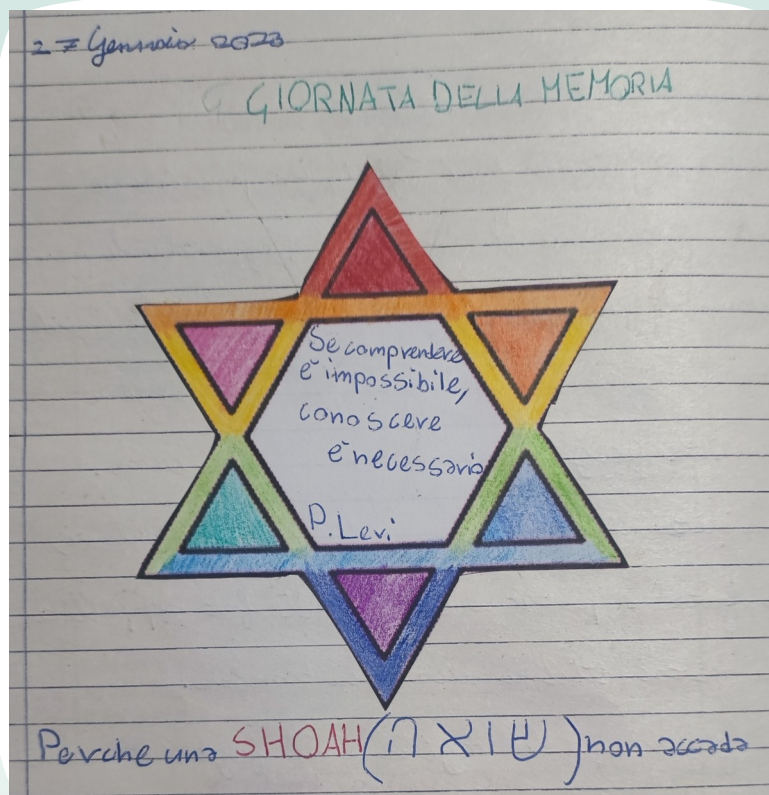 27 Gennaio 2023
GIORNATA DELLA MEMORIA
Se comprendere
è impossibile,
conoscere
è necessario
P. Levi
Perche una SHOAH (שואה) non accada